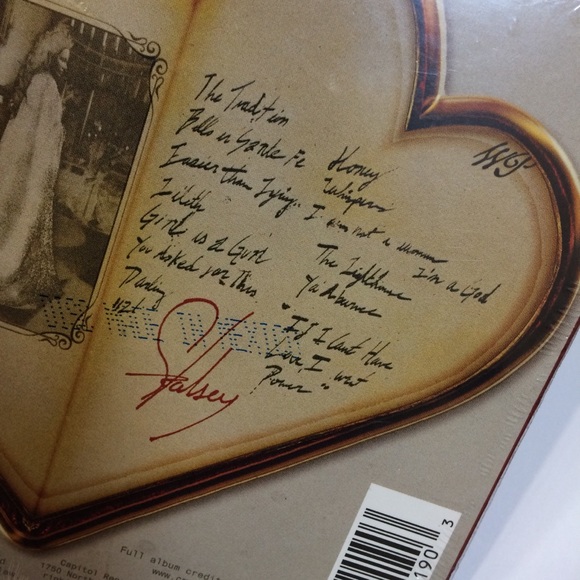 The Tradition
Bells in Santa Fe
Easier than Lying.
Lilith
Girl is a Gun
You asked for this.
Darling
1121
Honey
Whispers
I am not a woman
I'm a God
The Lighthouse
Ya'aburnee
"If I Can't Have
Love, I want
Power"
Halsey
Full album credit
www.c
Capitol Re
1750 North
190
3